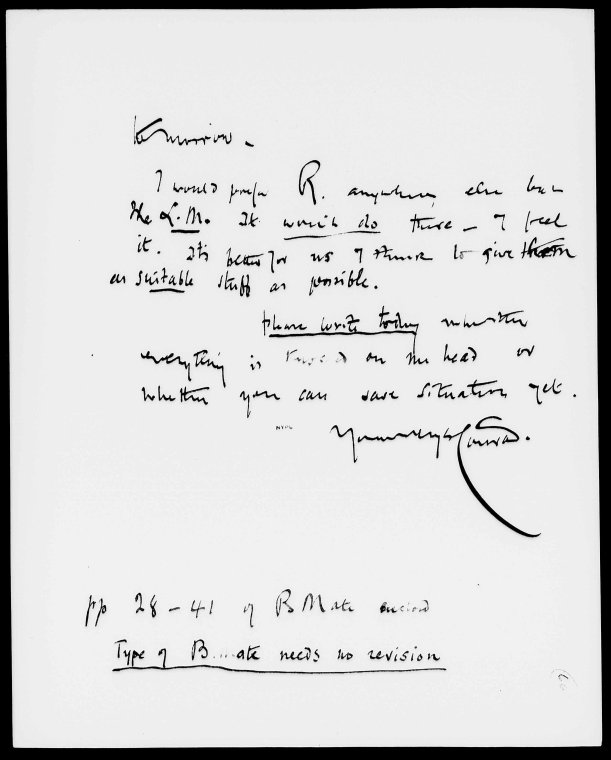 to-morrow –
I would prefer R. anywhere else but
the L.M. It won't do there – I feel
it. It's better for us I think to give them
as suitable stuff as possible.
Please write today whether
everything is turned on its head or
whether you can save situation yet.
Yours Conrad.
pp 28 – 41 of B Mate enclosed
Type of B. mate needs no revision